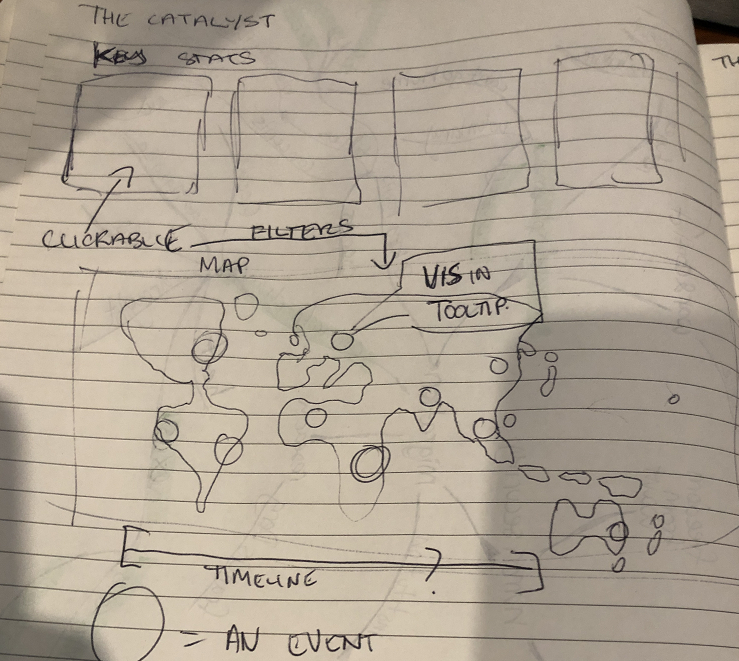 THE CATALYST
KEY STATS
CLICKABLE
FILTERS
MAP
VIS IN
TOOLTIP.
TIMELINE
?
= AN EVENT
TH